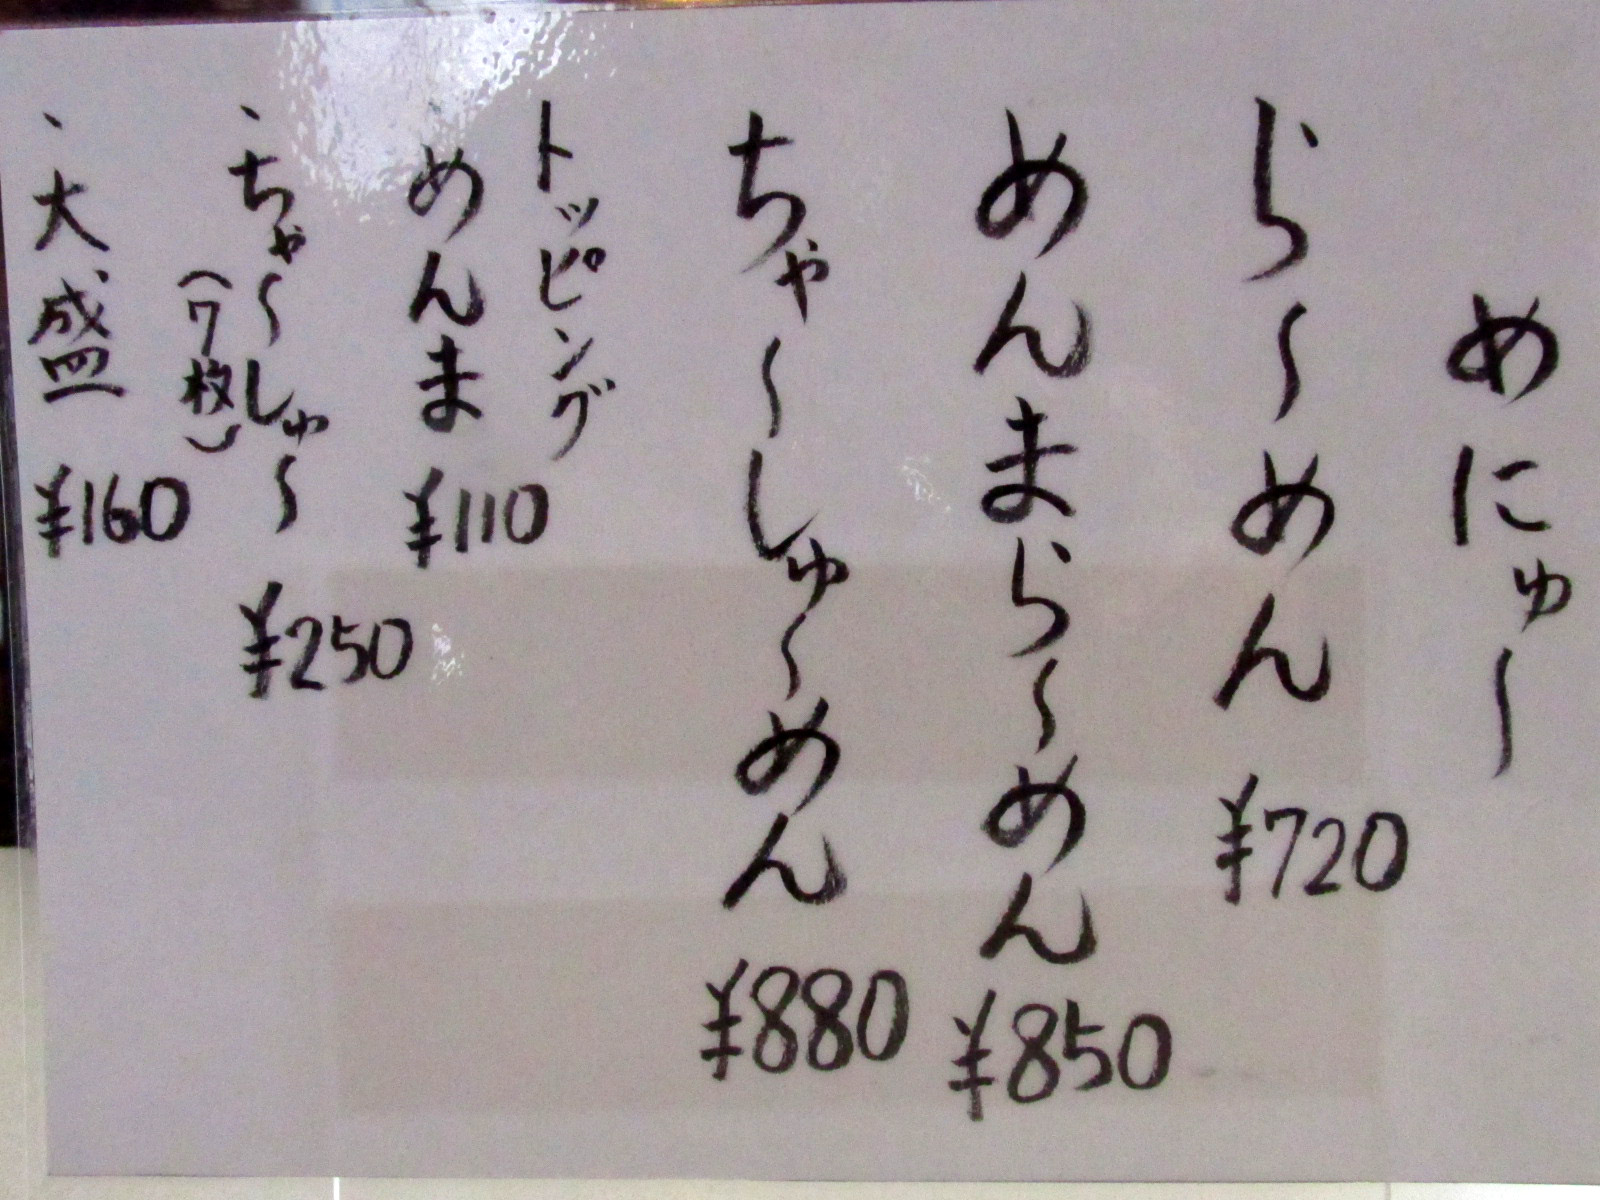 めにゅ～
らーめん ¥720
めんまら～めん ¥850
ちゃ～しゅ～めん ¥880
トッピング
・めんま ¥110
・ちゃ～しゅ～ ¥250
(7枚)
・大盛 ¥160